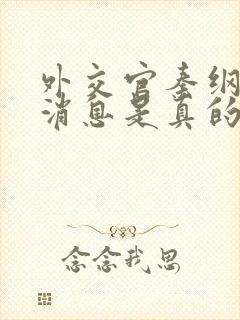 外交官秦纲
消息是真的
念念我思